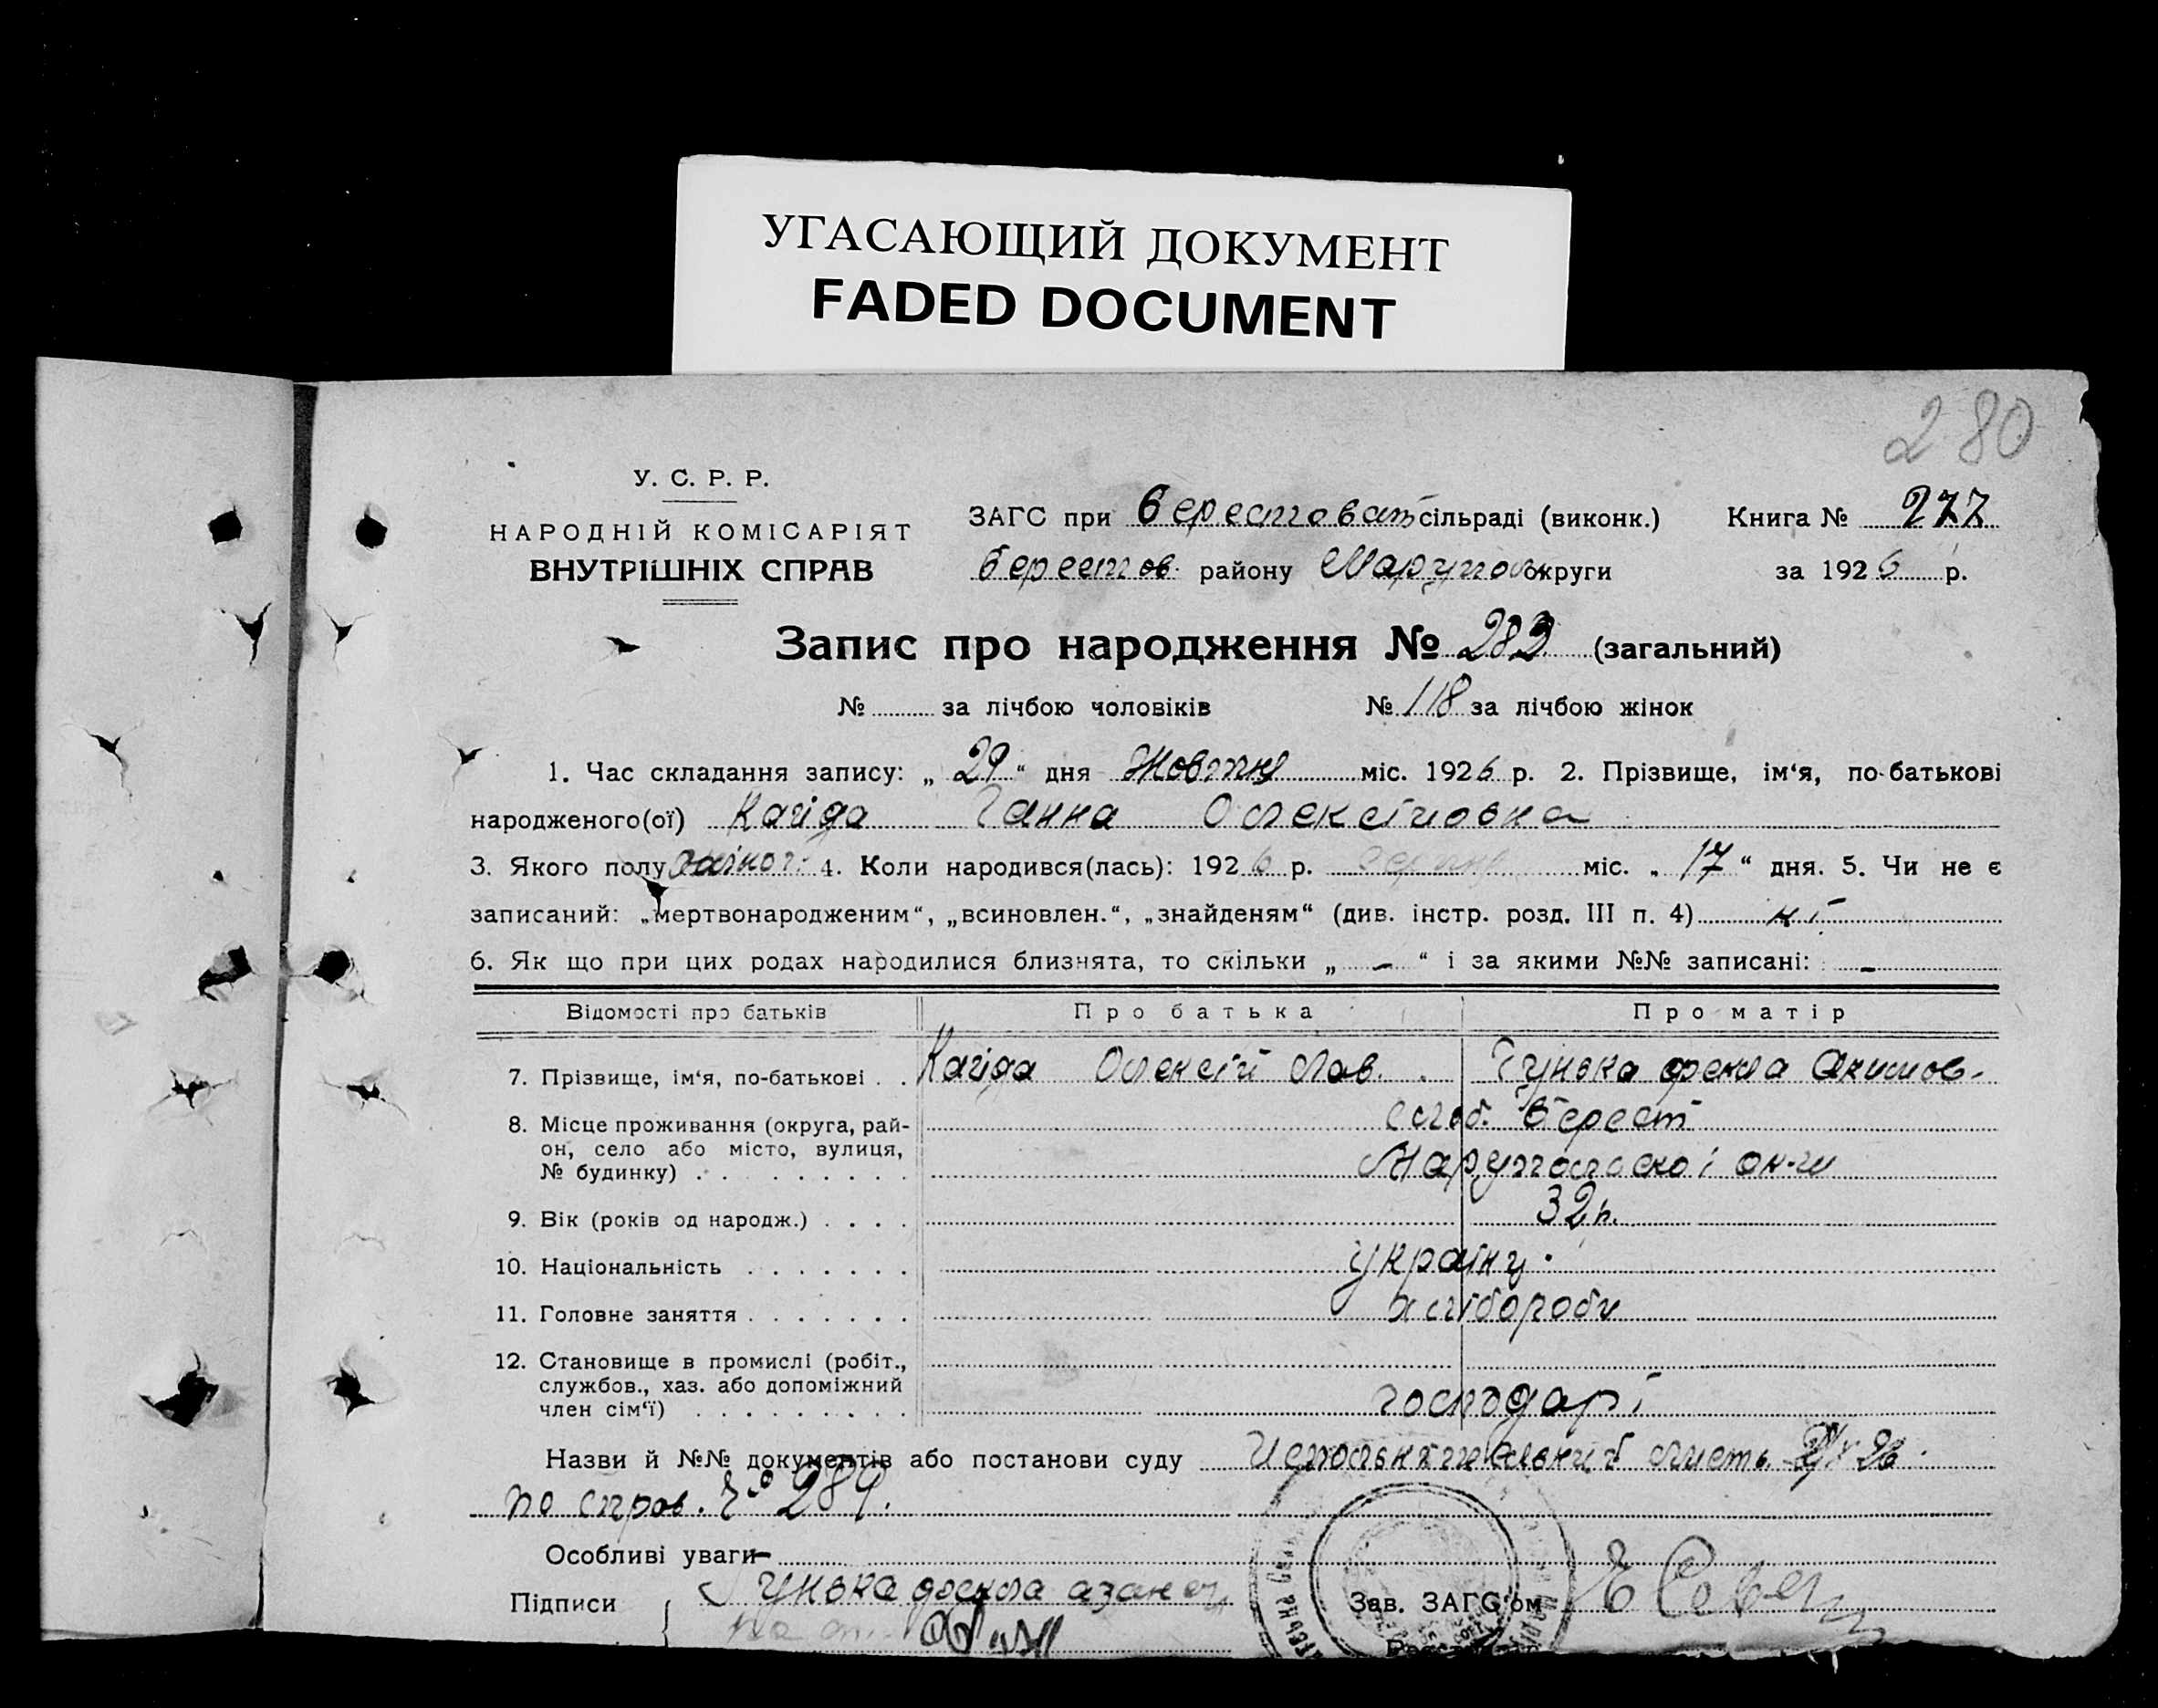 УГАСАЮЩИЙ ДОКУМЕНТ
FADED DOCUMENT
280
У. С. Р. Р.
НАРОДНІЙ КОМІСАРІЯТ
ВНУТРІШНІХ СПРАВ
ЗАГС при Берестоват сільраді (виконк.) Книга № 277
Берестов. району Марупол округи за 1926 р.
Запис про народження № 283 (загальний)
№ за лічбою чоловіків № 118 за лічбою жінок
1. Час складання запису: „ 29 “ дня Жовтня міс. 1926 р. 2. Прізвище, ім‘я, по-батькові
народженого(ої) Кайда Ганна Олексіиовна
3. Якого полу жіноч. 4. Коли народився(лась): 1926 р. серпня міс. „ 17 “ дня. 5. Чи не є
записаний: „мертвонародженим“, „всиновлен.“, „знайденям“ (див. інстр. розд. III п. 4) ні
6. Як що при цих родах народилися близнята, то скільки „ – “ і за якими №№ записані: –
Відомості про батьків Про батька Про матір
7. Прізвище, ім‘я, по-батькові Кайда Олексій Лав. Гунька Фекла Акимов-
8. Місце проживання (округа, рай- слоб. Берест
он, село або місто, вулиця, Марупольскоі ок-и
№ будинку)
9. Вік (років од народж.) 32 р.
10. Національність україну.
11. Головне заняття хлібороби
12. Становище в промислі (робіт.,
службов., хаз. або допоміжний господарі
член сім‘ї)
Назви й №№ документів або постанови суду лист
по спров. № 289.
Особливі уваги –
Підписи Гунька Фекла
Зав. ЗАГС‘ом